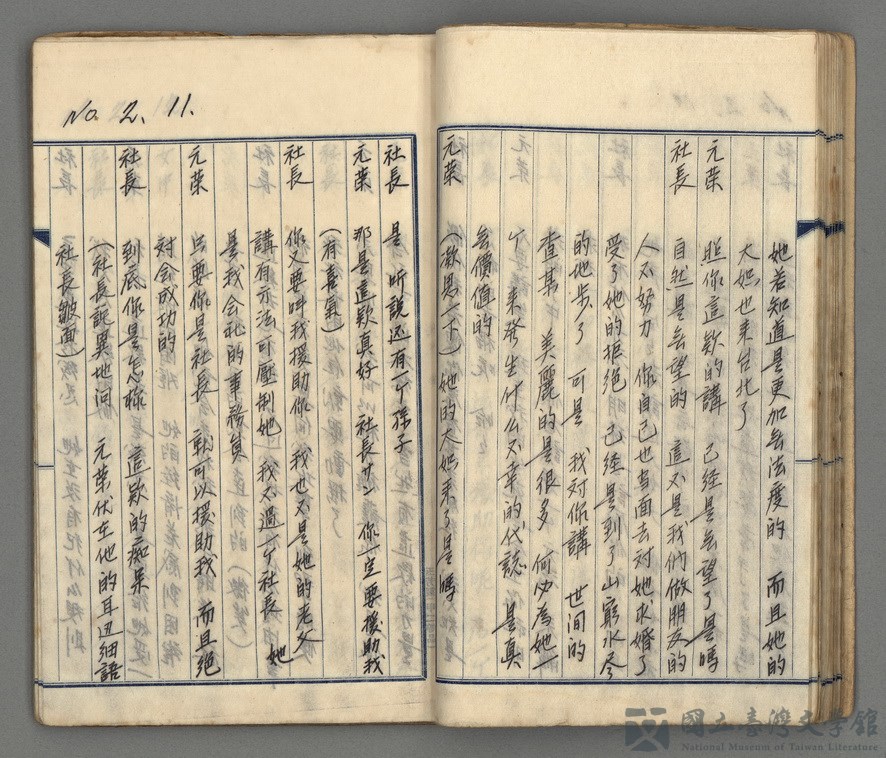 她若知道是更加無法度的 而且她的
大姐也来台北了
元荣 照你這欸的講 已經是無望了是嗎
社長 自然是無望的 這不是我們做朋友的
人不努力 你自己也当面去对她求婚了
受了她的拒絕 己經是到了山窮水尽
的地步了 可是 我对你講 世间的
查某 美麗的是很多 何必為她一
个 来發生什么不幸的代誌 是真
無價值的
元荣 (激思一下) 她的大姐来了是嗎
No. 2. 11.
社長 是 听說还有一个孫子
元荣 那是這欸真好 社長サン 你一定要援助我
(有喜氣)
社長 你又要叫我援助你 我也不是她的老父
講有方法可壓制她 我不過一个社長 她
是我会社的事務員
元荣 只要你是社長 就可以援助我 而且絕
对会成功的
社長 到底你是怎樣 這欸的痴呆
(社長詫異地问 元荣伏在他的耳边細語
社長皺面)
國立臺灣文學館
National Museum of Taiwan Literature